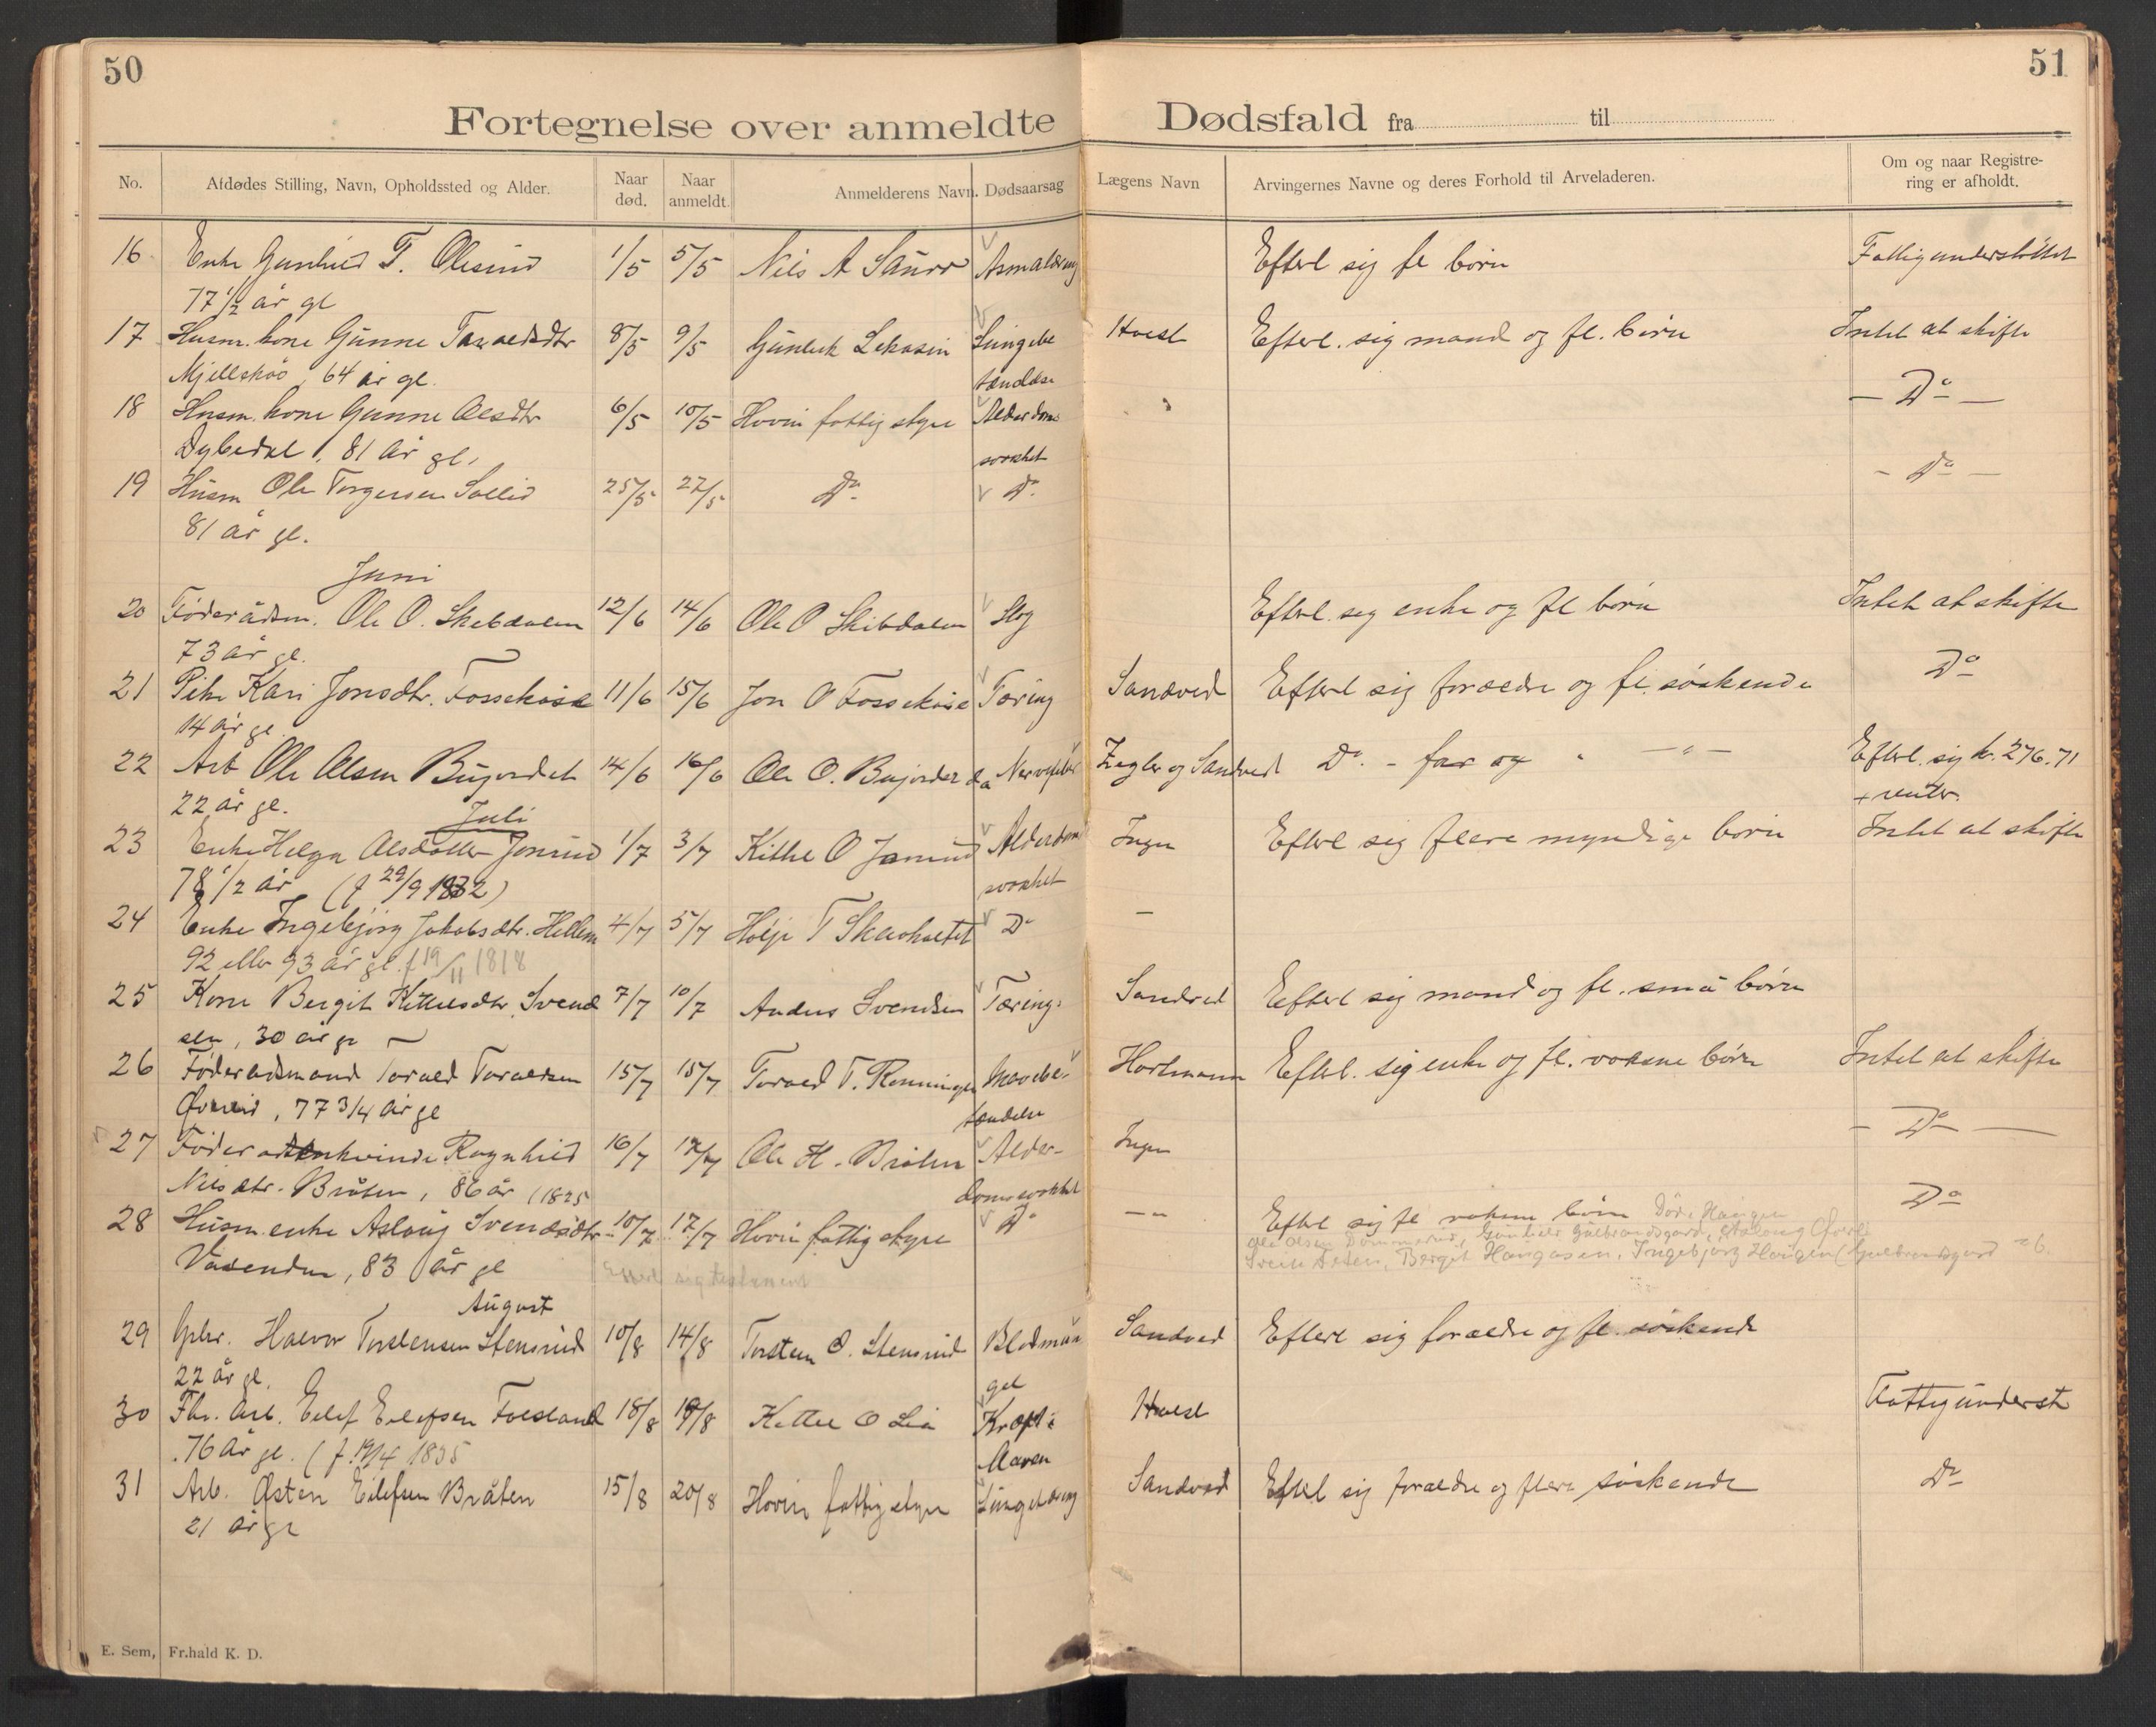 50
51
Fortegnelse over anmeldte Dødsfald fra til
No. Afdødes Stilling, Navn, Opholdssted og Alder. Naar død. Naar anmeldt. Anmelderens Navn. Dødsaarsag Lægens Navn Arvingernes Navne og deres Forhold til Arveladeren. Om og naar Registrering er afholdt.
16 Enke Gunhild T. Olesund 1/5 5/5 Nils A Saurr Efterl sig fl børn Fattigunderstöttet
77 1/2 år gl
17 Husm. kone Gunne Taraldsdtr 8/5 9/5 Gunleik Lekasin Lungebe Hvesl Efterl. sig mand og fl. børn Intet at skifte
64 år gl. tændelse
18 Husm. kone Gunne Olsdtr 6/5 10/5 Hovin fattigstyre Alderdoms — Do —
Dybedal, 81 år gl, svakhet
19 Husm Ole Torgersen Sollid 25/5 27/5 Do v Do - Do -
81 år gl.
Juni
20 Föderådsm. Ole O. Skebdalen 12/6 14/6 Ole O Skibdalen Slag Efterl. sig enke og fl børn Intet at skifte
73 år gl.
21 Pike Kari Jonsdtr. Fossekåse 11/6 15/6 Jon O Fossekåse Tæring Sandved Efterl sig forældre og fl. söskende Do
14 år gl.
22 Arb Ole Olsen Bujordet 14/6 16/6 Ole O. Bujordet Nervefeber Zegler og Sandved Do. - far og " — " — Efterl. sig kr. 276.71
22 år gl. + renter.
Juli
23 Enke Helga Olsdatter Jonrud 1/7 3/7 Kittel O Jonrud Alderdoms Ingen Efterl sig flere myndige börn Intet at skifte
78 1/2 år (f 29/9 1832) svakhet
24 Enke Ingebjörg Jakobsdtr. Hellem 4/7 5/7 Do —
92 eller 93 år gl. f 19/11 1818
25 Kone Bergit Kittelsdtr. Svend 7/7 10/7 Anders Svendsen Tæring. Sandved Efterl sig mand og fl. små børn
sen, 30 år gl
26 Föderådsmand Torald Toraldsen 15/7 15/7 Torald T. Rønningen Mavebe- Hartmann Efterl. sig enke og fl. voksne børn Intet at skifte
77 3/4 år gl tændelse
27 Föderådskvinde Ragnhild 16/7 17/7 Ole H. Bråten Alder- Ingen — Do —
Nilsdtr. Bråten, 86 år (1825 domssvakhet
28 Husm. enke Aslaug Svendsdtr 10/7 17/7 Hovin fattigstyre Do — " Efterl sig fl voksne børn Do
Ole Olsen Gunhild Gulbrandsgard, Aslaug
Vasenden, 83 år gl Bergit Haugåsen, Ingebjørg Haugen (Gulbrandsgard
Efterl sig testament
August
29 Gbr. Halvor Torstensen Stensrud 10/8 14/8 Torsten O. Stensrud Blodman Sandved Efterl sig forældre og fl. söskende
22 år gl. gel
30 Fhv. Arb. Eilef Eilefsen Folsland 18/8 19/8 Kittel O Lia Kræft i Hvesl Fattigunderst
76 år gl. (f. 19/4 1835 Maven
31 Arb. Østen Eilefsen Bråten 15/8 20/8 Hovin fattigstyre Lungetæring Sandved Efterl sig forældre og flere söskende Do
21 år gl
E. Sem, Fr.hald K. D.